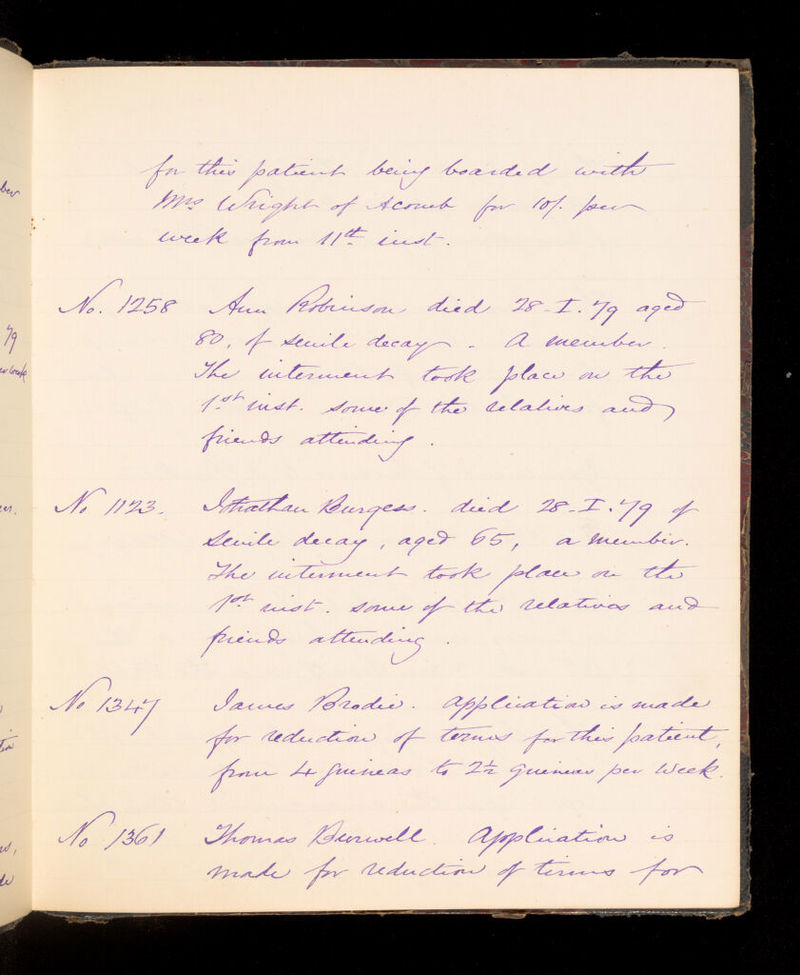 for this patient being boarded with
Mrs Wright of Acomb for 10/. per
week from 11th inst.
No. 1258 Ann Robinson died 28-I.79 aged
80, of senile decay. A member.
The interment took place on the
1st inst. some of the relatives and
friends attending.
No 1123. Jonathan Burgess. died 28-I.79 of
senile decay, aged 65, a member.
The interment took place on the
1st inst. some of the relatives and
friends attending.
No 1347 James Brodie. Application is made
for reduction of terms for this patient,
from 4 guineas to 2½ guineas per week.
No 1361 Thomas Burwell. Application is
made for reduction of terms for